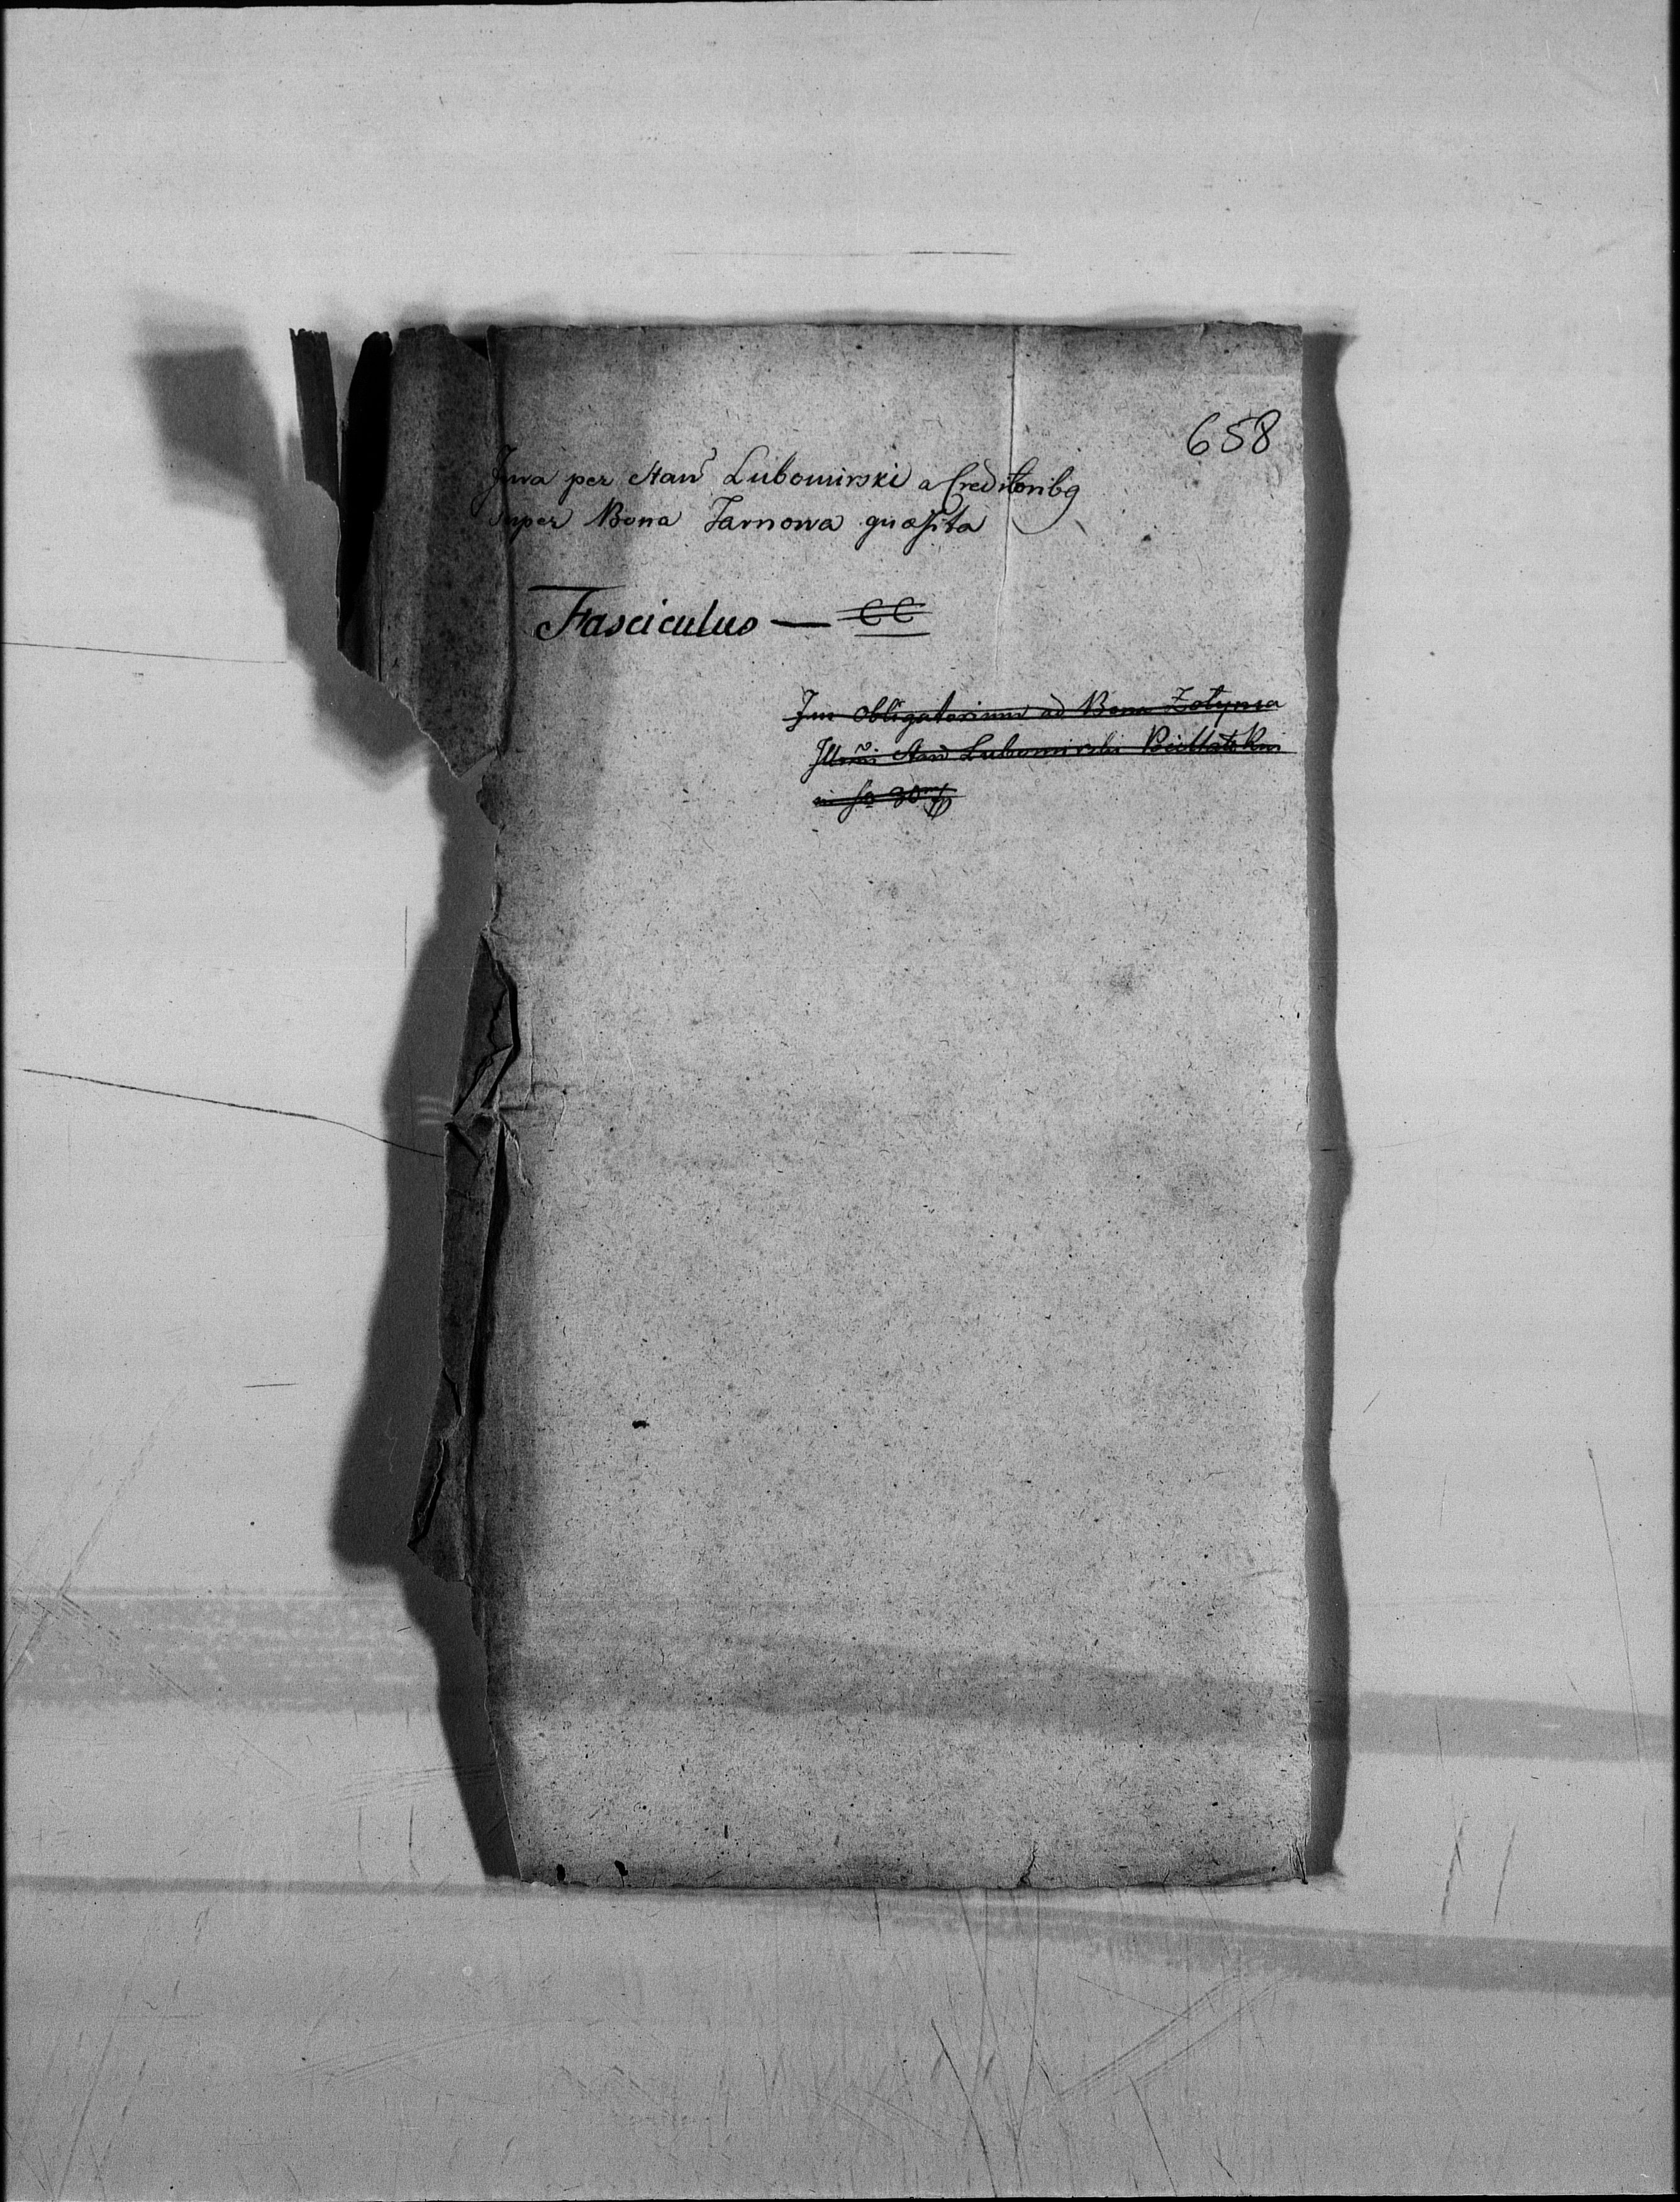 658
Jura per Stan̄ Lubomirski a Creditoribq
super Bona Tarnowa quæsita
Fasciculus — CC
Jus obligatorium ad Bona Żołynia
Illmi Stan̄ Lubomirski
in so 30m